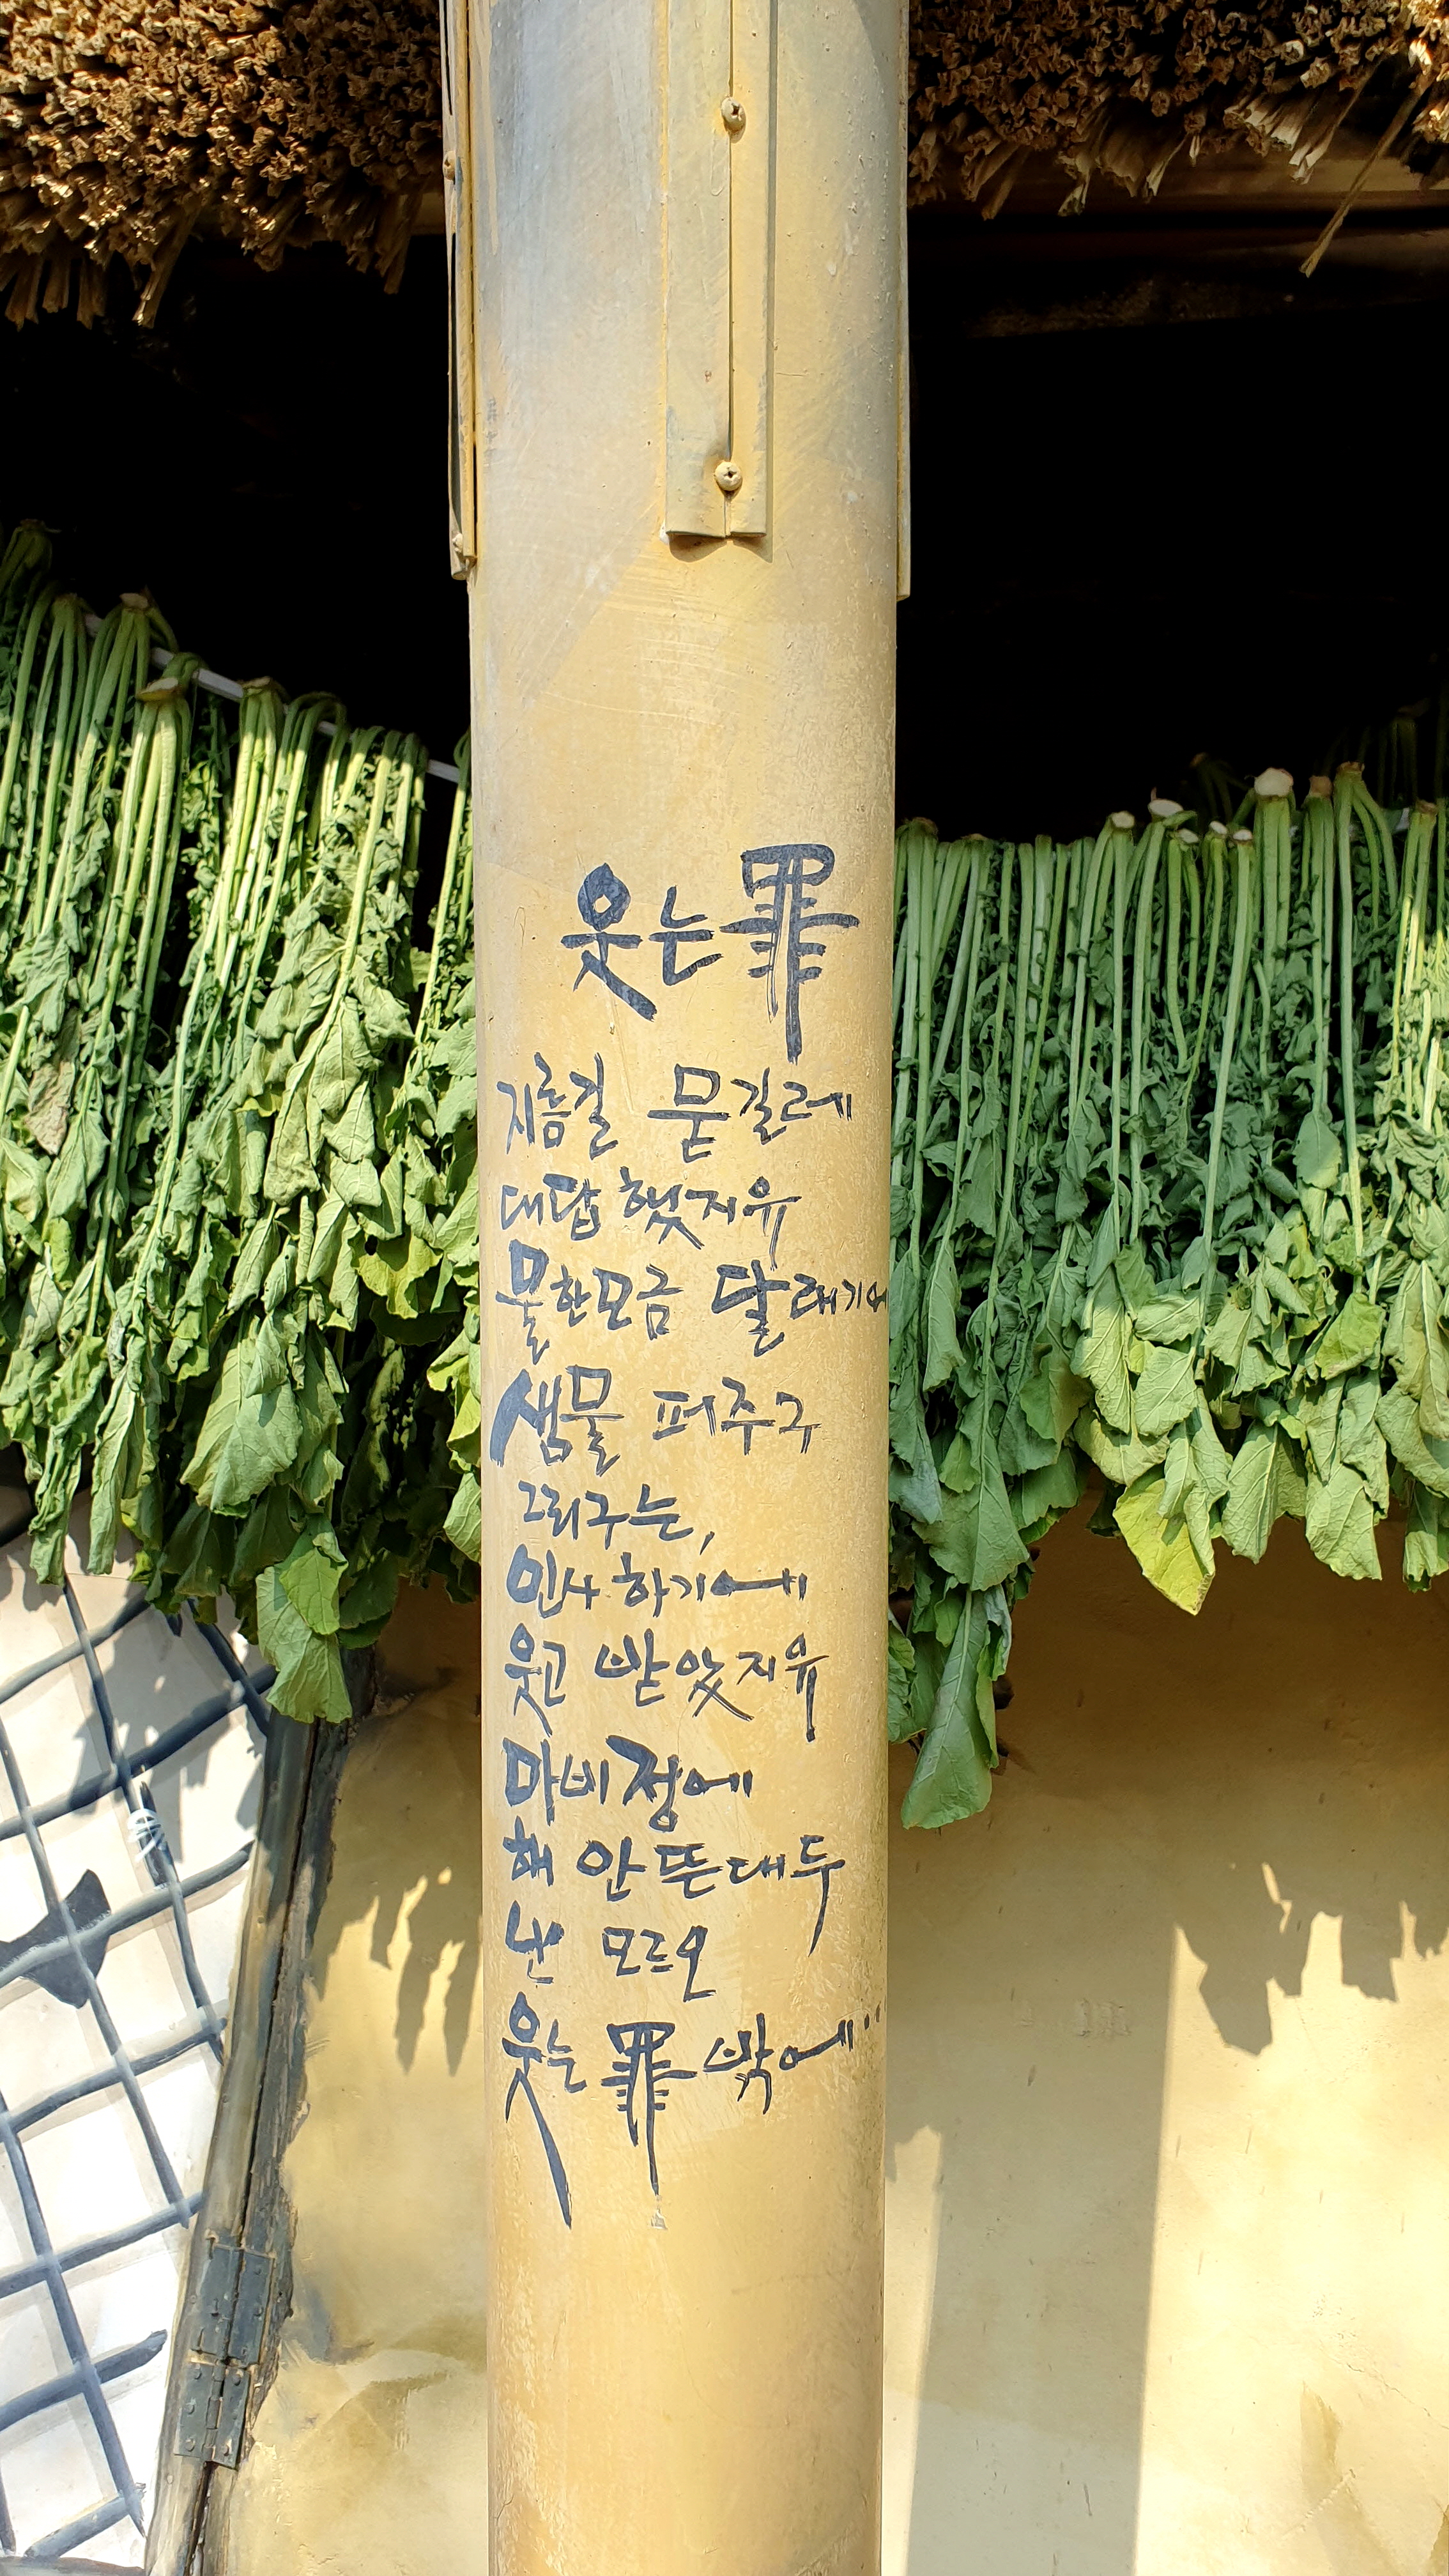 웃는罪
지름길 묻길레
대답했지유
물한모금 달래기에
샘물 퍼주구
그리구는,
인사하기에
웃고 받았지유
마비정에
해 안뜬대두
난 모르오
웃는 罪 밖에"